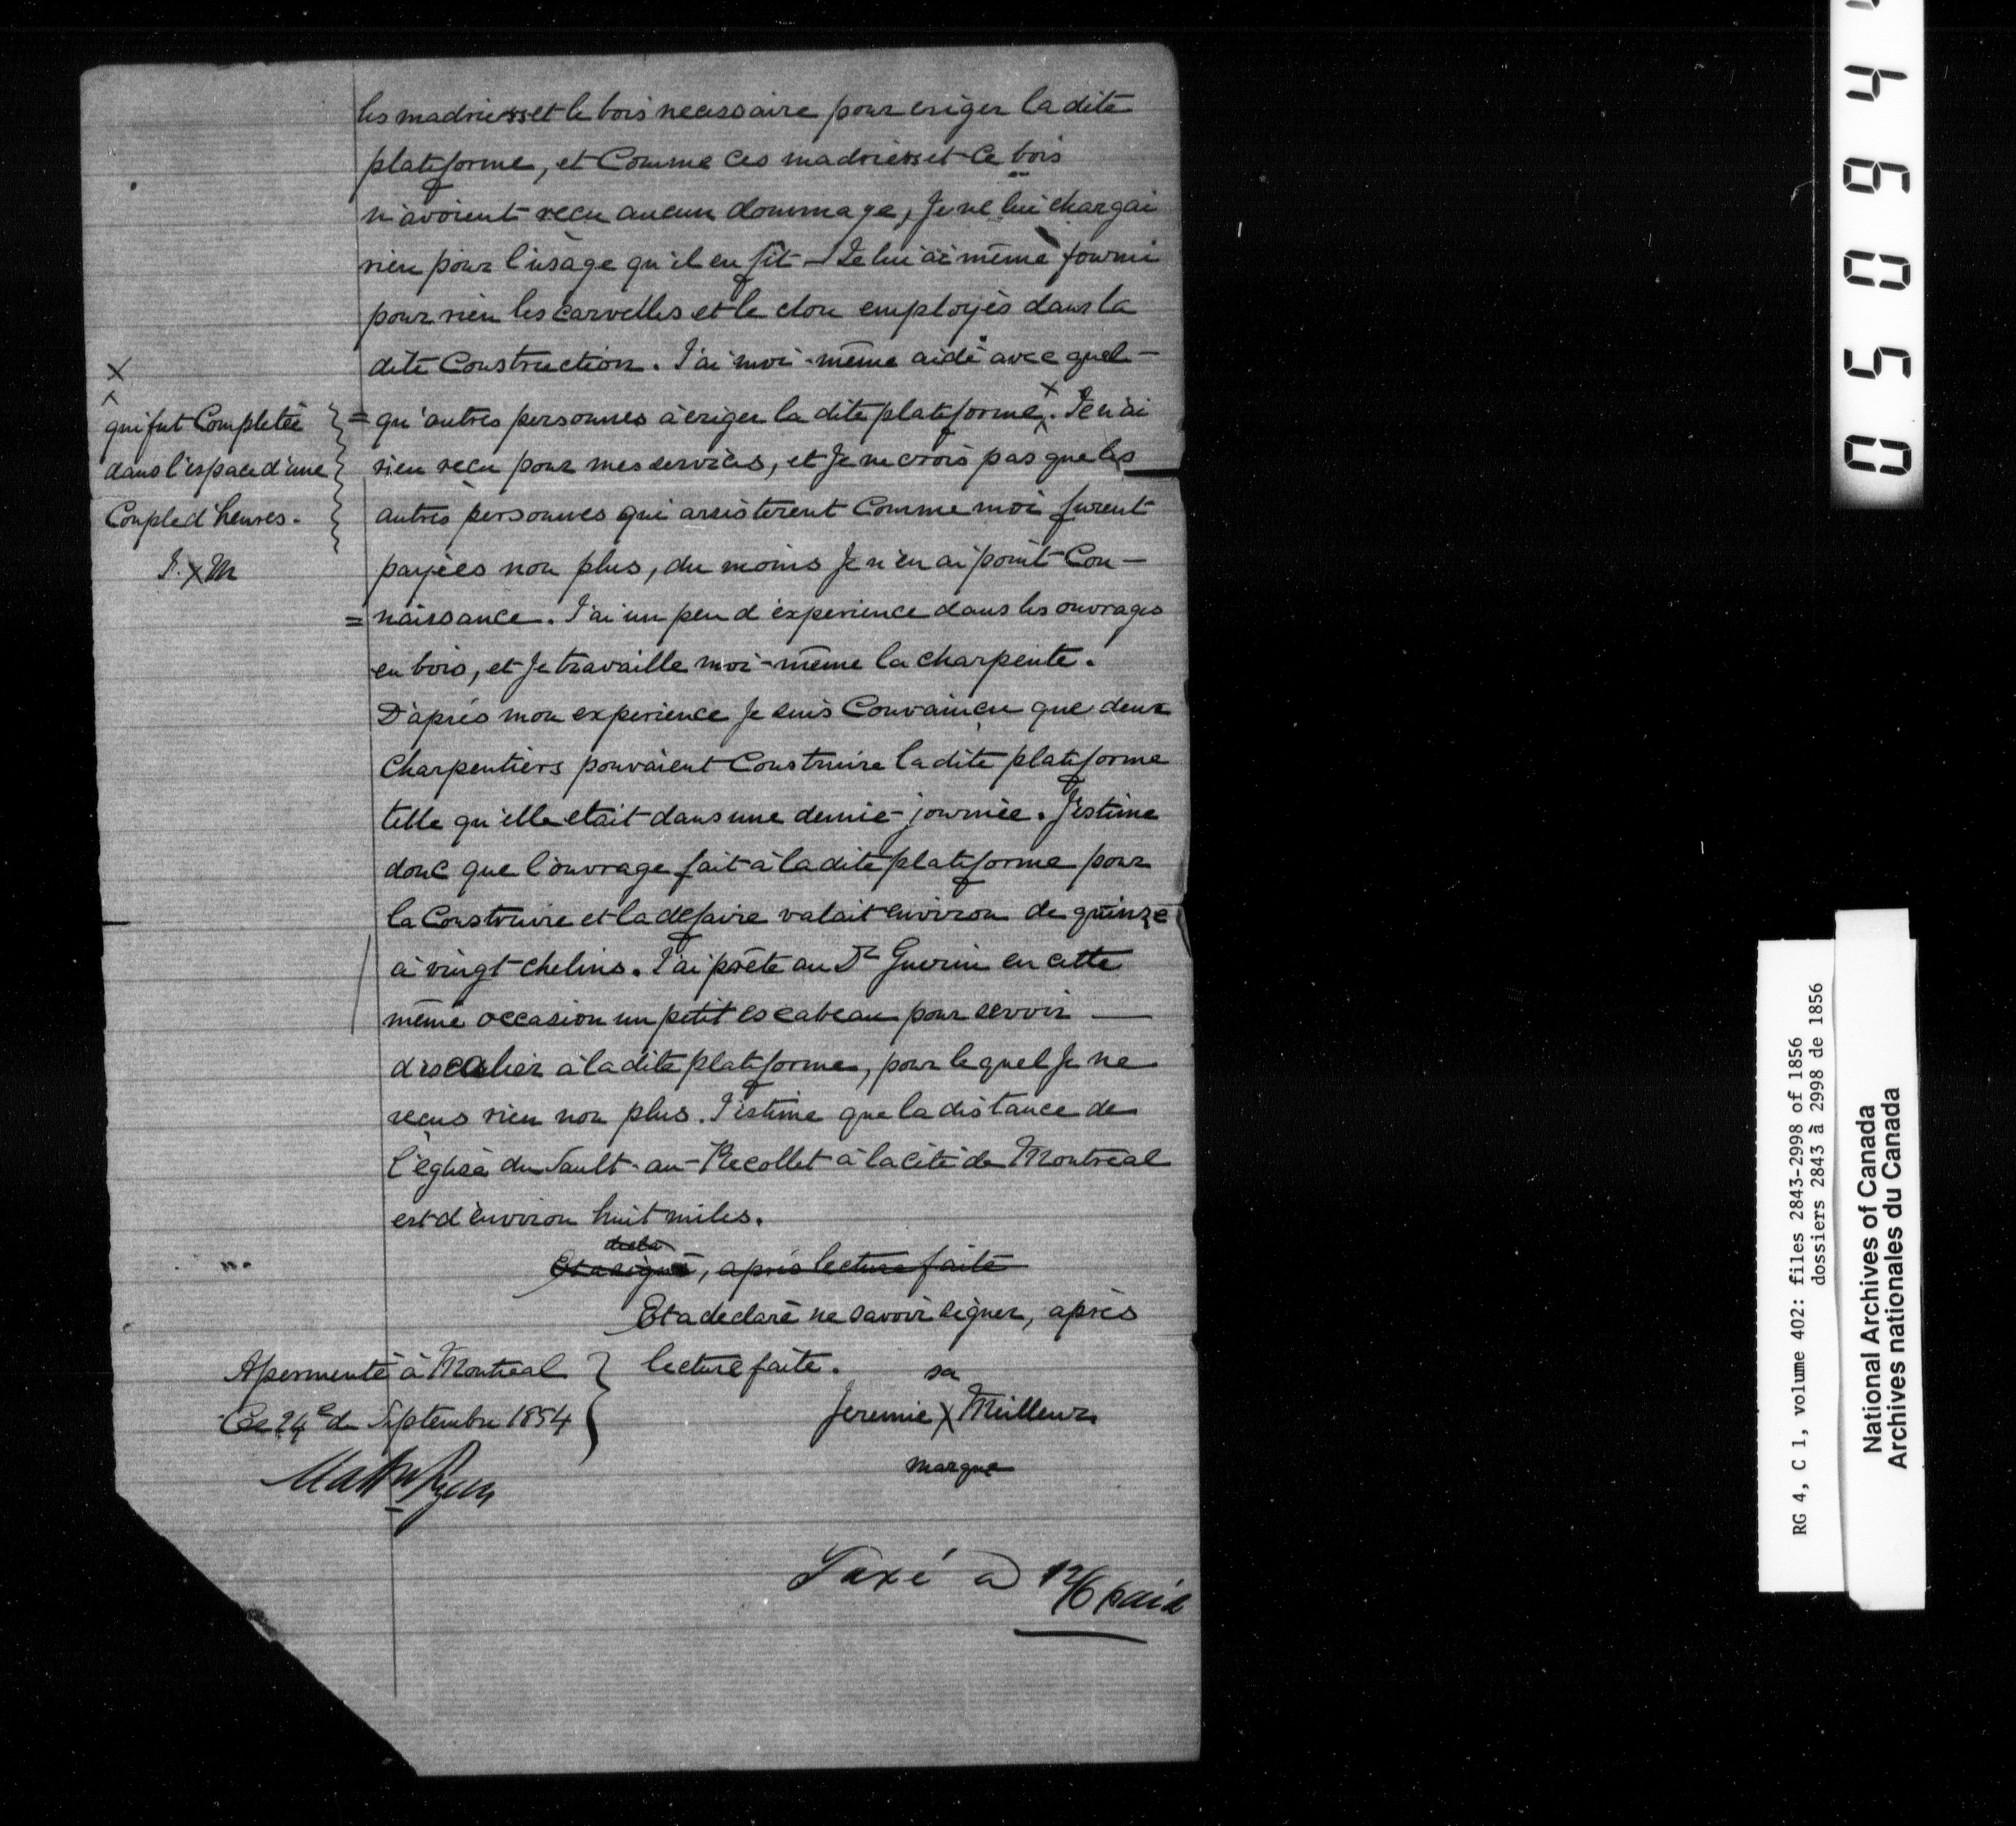 les madriers et le bois necessaire pour eriger la dite
plateforme, et Comme ces madriers et ce bois
n'avoient reçu aucun dommage, Je ne lui chargai
rien pour l'usage qu'il en fit — Je lui ai même fourni
pour rien les carvelles et le clou employés dans la
dite Construction. J'ai moi-même aidé avec quel-
= qu'autres personnes à eriger la dite plateforme x. Je n'ai
rien reçu pour mes services, et Je ne crois pas que les
autres personnes qui assisterent Comme moi furent
payées non plus, du moins Je n'en ai point Con-
= naissance. J'ai un peu d'experience dans les ouvrages
en bois, et Je travaille moi-même la charpente.
D'après mon experience Je suis Convaincu que deux
Charpentiers pouvaient Construire la dite plateforme
telle qu'elle etait dans une demie-journée. J'estime
donc que l'ouvrage fait à la dite plateforme pour
la Construire et la defaire valait environ de quinze
à vingt chelins. J'ai prêté au Sr Guerin en cette
même occasion un petit escabeau pour servir —
d'escalier à la dite plateforme, pour lequel Je ne
reçus rien non plus. J'estime que la distance de
l'église du Sault-au-Recollet à la cité de Montréal
est d'environ huit miles.
Et a signé, après lecture faite
Et a declaré ne savoir signer, après
lecture faite.
sa
Jeremie X Meilleur
marque
x
qui fut Completée
dans l'espace d'une
Couple d'heures.
J. X M
Assermenté à Montreal
Ce 24e de Septembre 1854
Taxé a 12/6 paid
0 5 0 9 4
RG 4, C 1, volume 402: files 2843-2998 of 1856
dossiers 2843 à 2998 de 1856
National Archives of Canada
Archives nationales du Canada